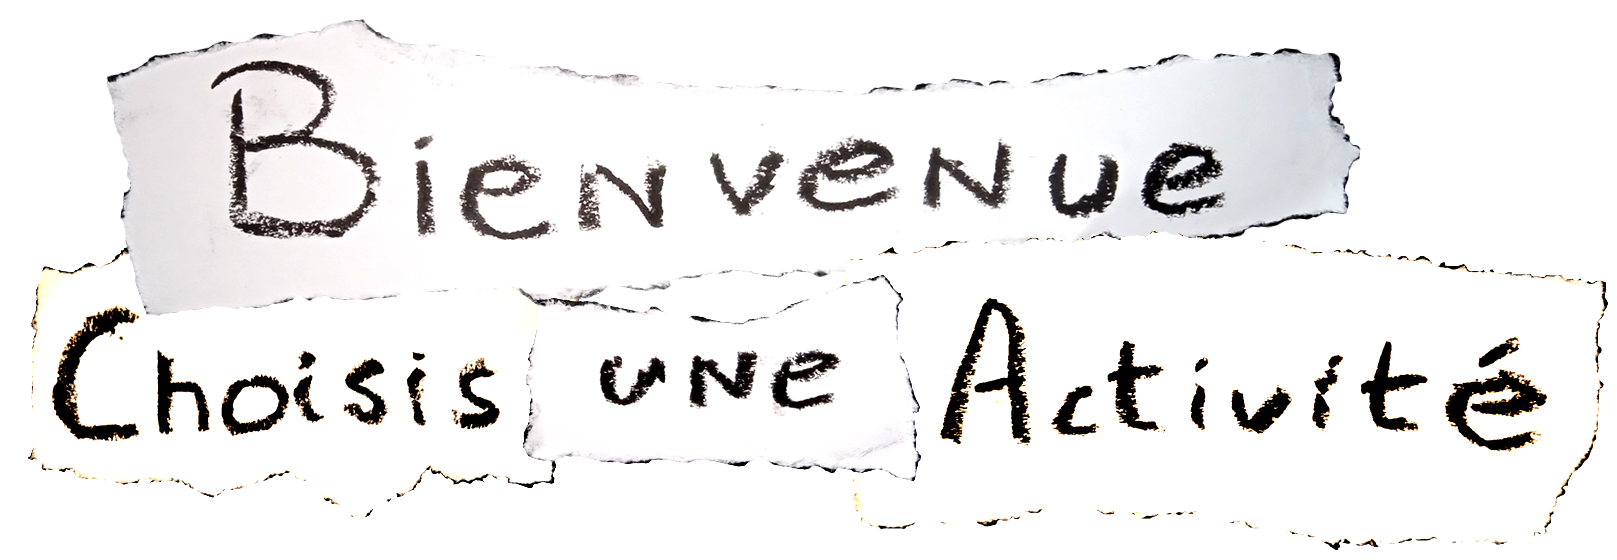 Bienvenue
Choisis une Activité